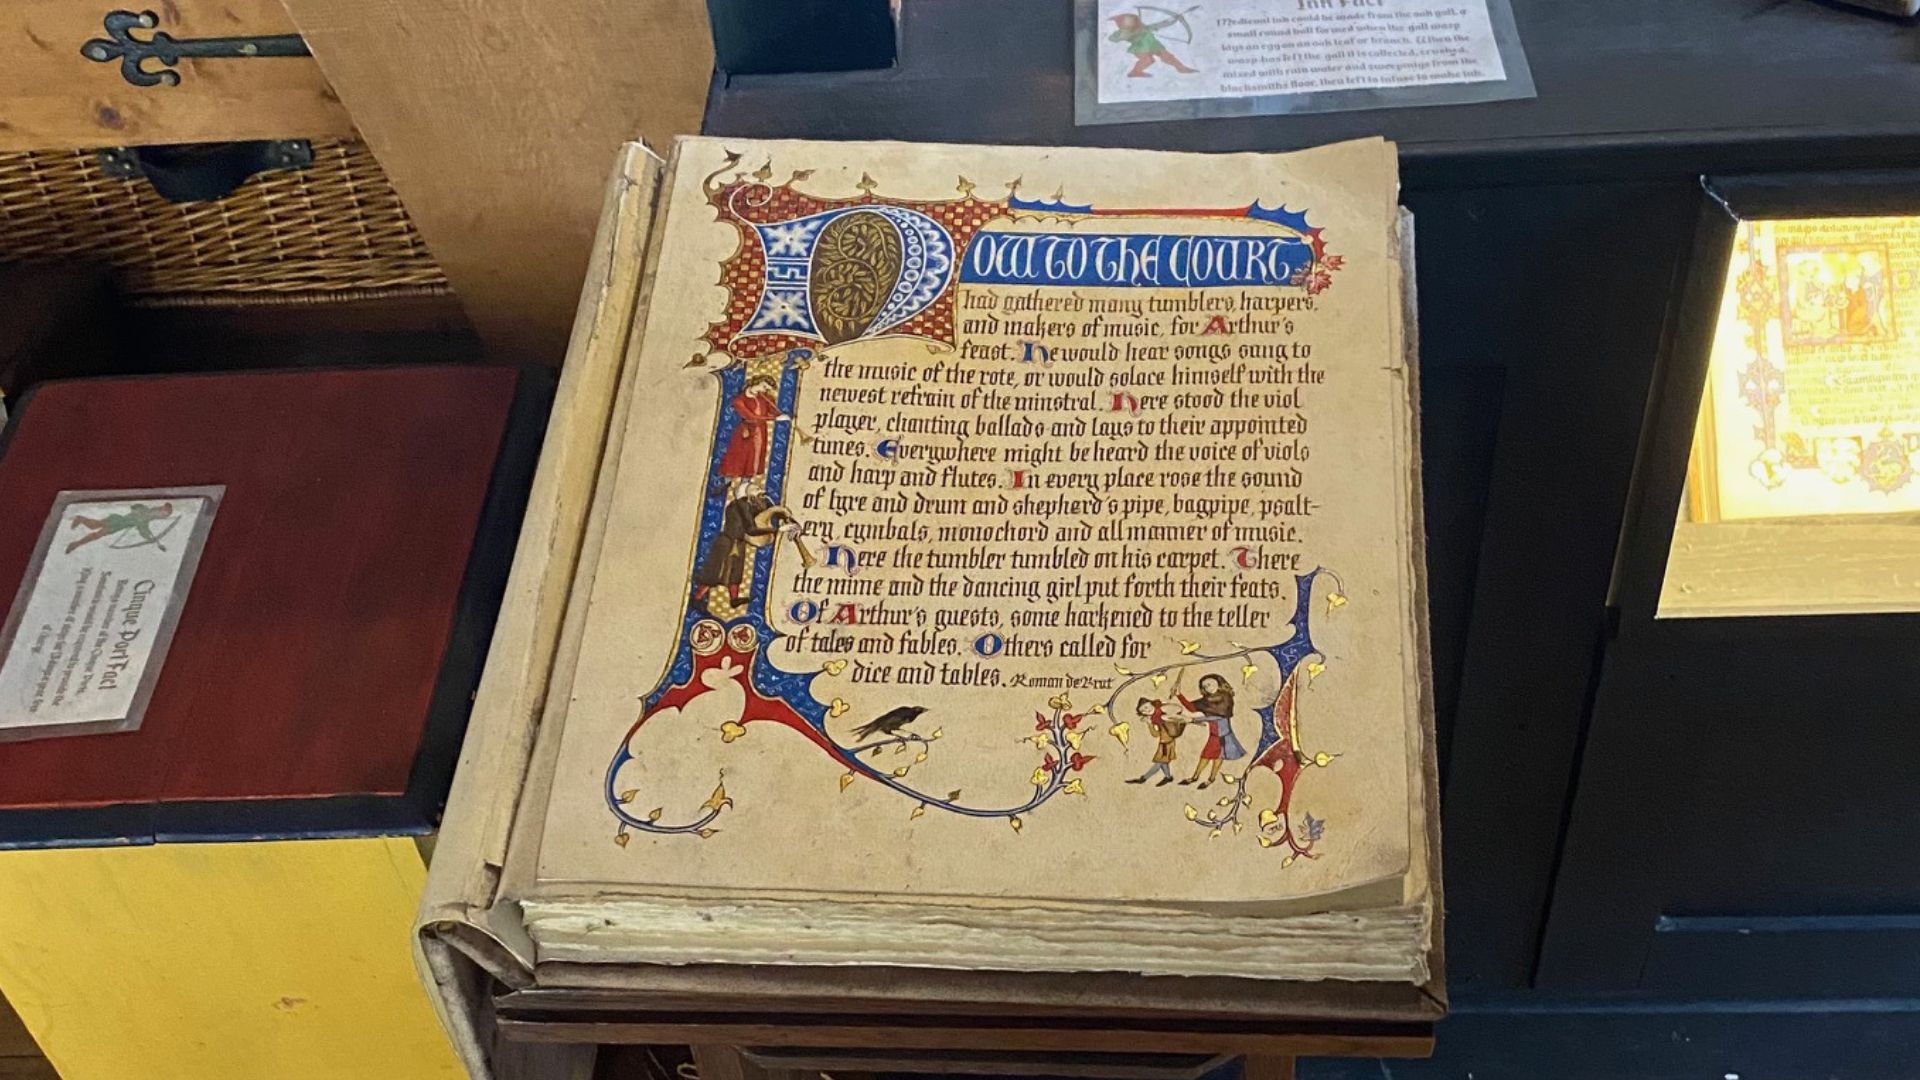 Ink Fact
Medieval ink could be made from the oak gall, a
small round ball formed when the gall wasp
lays an egg on an oak leaf or branch. When the
wasp has left the gall it is collected, crushed,
mixed with rain water and sweepings from the
blacksmiths floor, then left to infuse to make ink.
NOW TO THE COURT
had gathered many tumblers, harpers,
and makers of music, for Arthur's
feast. He would hear songs sung to
the music of the rote, or would solace himself with the
newest refrain of the minstral. Here stood the viol
player, chanting ballads and lays to their appointed
tunes. Everywhere might be heard the voice of viols
and harp and flutes. In every place rose the sound
of lyre and drum and shepherd's pipe, bagpipe, psalt-
ery, cymbals, monochord and all manner of music.
Here the tumbler tumbled on his carpet. There
the mime and the dancing girl put forth their feats.
Of Arthur's guests, some harkened to the teller
of tales and fables. Others called for
dice and tables. Roman de Brut
Cinque Port Fact
Being a member of the Cinque Ports,
of charge